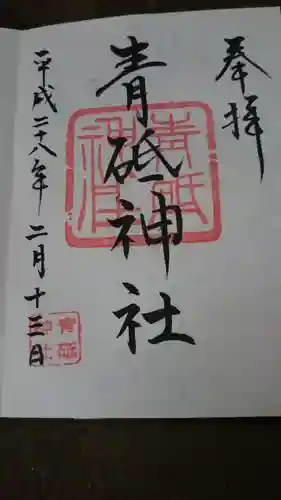 奉拝
青砥神社
平成二十八年二月十三日
青砥
神社